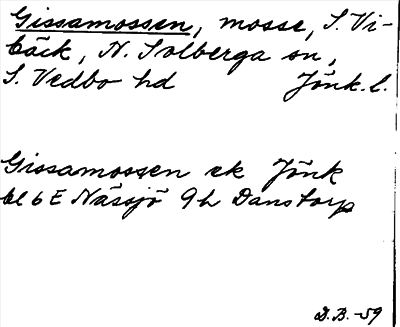 Gissamossen, mosse, S. Vi-
bäck, N. Solberga sn,
S. Vedbo hd Jönk. l.
Gissamossen ek Jönk
bl 6 E Nässjö 9 h Danstorp
D. B. -59